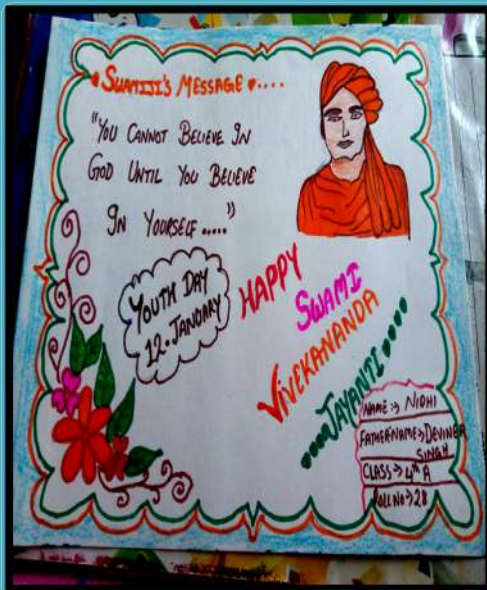 • SWAMIJI'S MESSAGE •....
"YOU CANNOT BELIEVE IN
GOD UNTIL YOU BELIEVE
IN YOURSELF ....."
YOUTH DAY
12. JANUARY
HAPPY
SWAMI
VIVEKANANDA
JAYANTI
NAME → NIDHI
FATHERNAME → DEVINER
SINGH
CLASS → 4th A
ROLL NO → 28